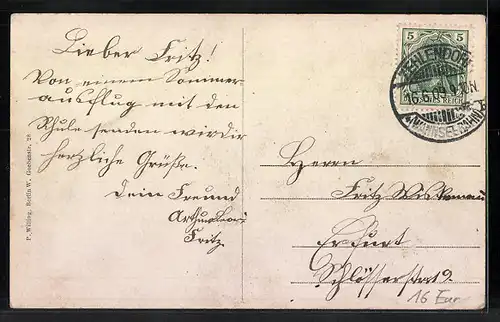 Lieber Fritz!
Von einem Sommer-
ausflug mit den
Schule senden wir dir
herzliche Grüße.
Dein Freund
Arthur
Fritz
P. Willing, Berlin W., Goebenstr. 20
5 5
REICH
ZEHLENDORF
16.6.09. N.
(WANNSEEBAHN)
Herrn
Fritz
Erfurt
Schlösserstrat 9.
16 Eur